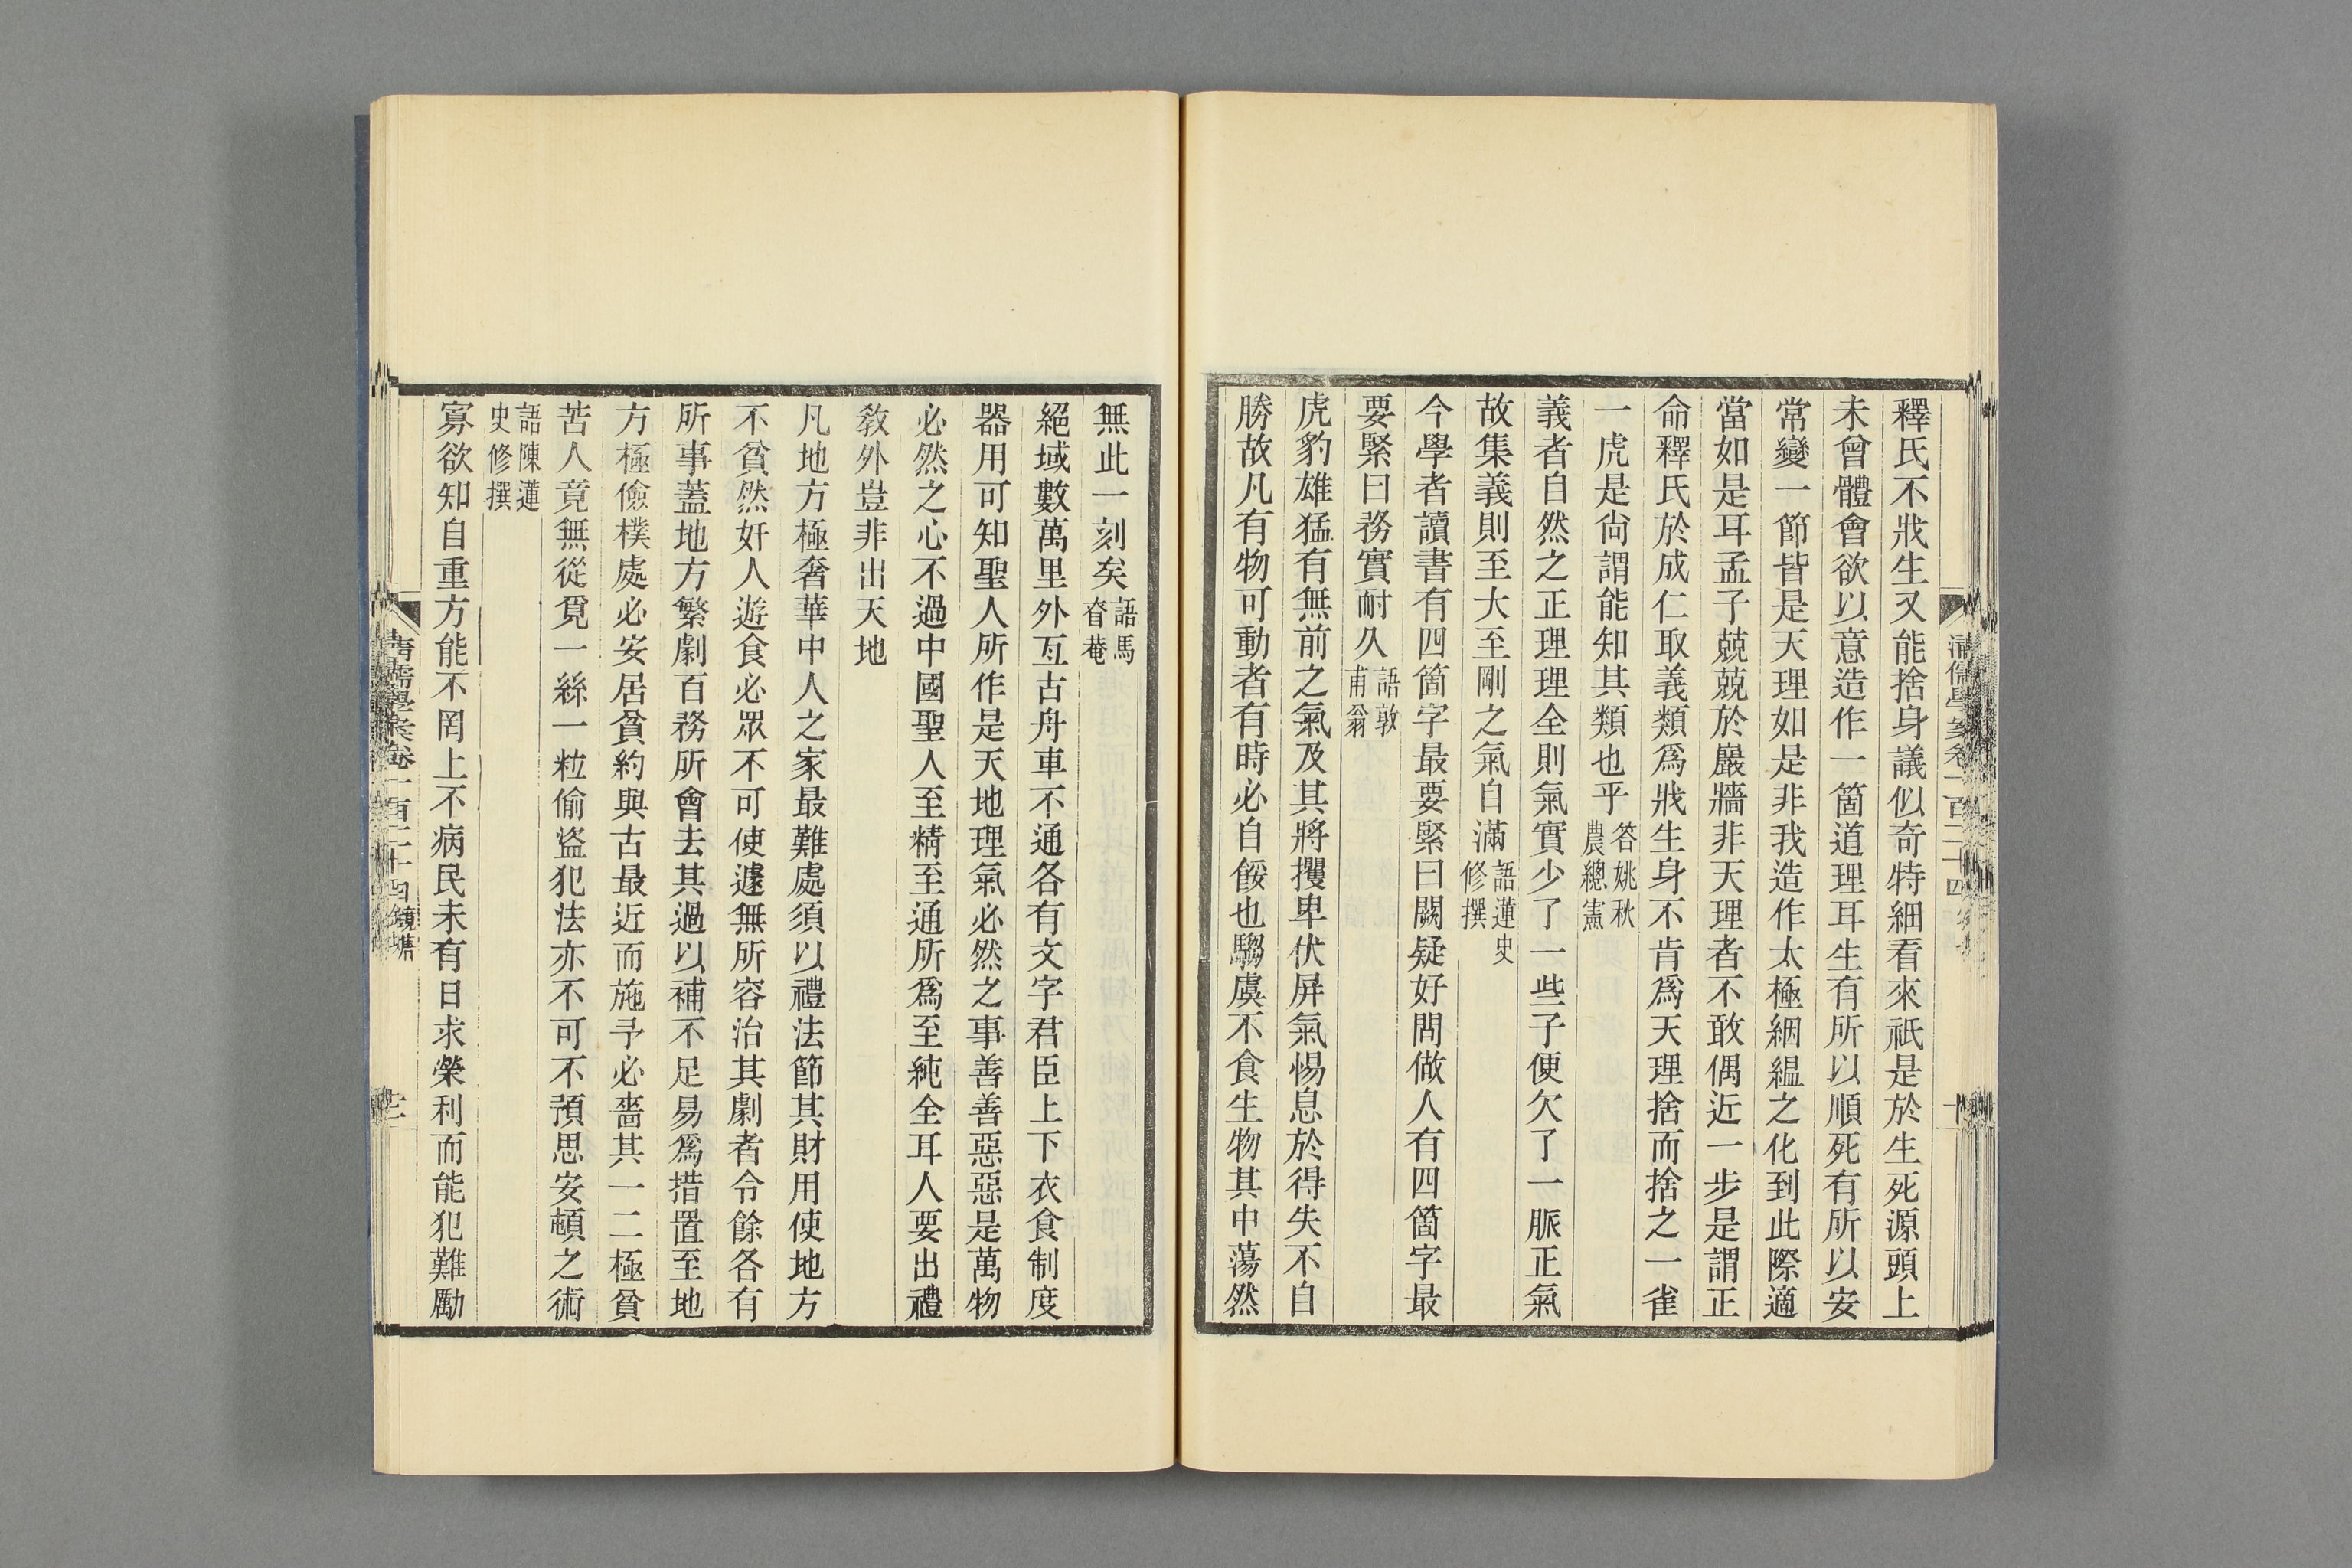 釋氏不戕生又能捨身議似奇特細看來祇是於生死源頭上
未曾體會欲以意造作一箇道理耳生有所以順死有所以安
常變一節皆是天理如是非我造作太極絪縕之化到此際適
當如是耳孟子兢兢於巖牆非天理者不敢偶近一步是謂正
命釋氏於成仁取義類爲戕生身不肯爲天理捨而捨之一雀
一虎是尙謂能知其類也乎答姚秋農總憲
義者自然之正理理全則氣實少了一些子便欠了一脈正氣
故集義則至大至剛之氣自滿語蓮史修撰
今學者讀書有四箇字最要緊曰闕疑好問做人有四箇字最
要緊曰務實耐久語敦甫翁
虎豹雄猛有無前之氣及其將攫卑伏屏氣惕息於得失不自
勝故凡有物可動者有時必自餒也騶虞不食生物其中蕩然
無此一刻矣語馬奮菴
絕域數萬里外亙古舟車不通各有文字君臣上下衣食制度
器用可知聖人所作是天地理氣必然之事善善惡惡是萬物
必然之心不過中國聖人至精至通所爲至純全耳人要出禮
敎外豈非出天地
凡地方極奢華中人之家最難處須以禮法節其財用使地方
不貧然奸人遊食必眾不可使遽無所容治其劇者令餘各有
所事蓋地方繁劇百務所會去其過以補不足易爲措置至地
方極儉樸處必安居貧約與古最近而施予必嗇其一二極貧
苦人竟無從覓一絲一粒偷盜犯法亦不可不預思安頓之術
語陳蓮史修撰
寡欲知自重方能不罔上不病民未有日求榮利而能犯難勵
清儒學案卷一百二十四 鏡塘